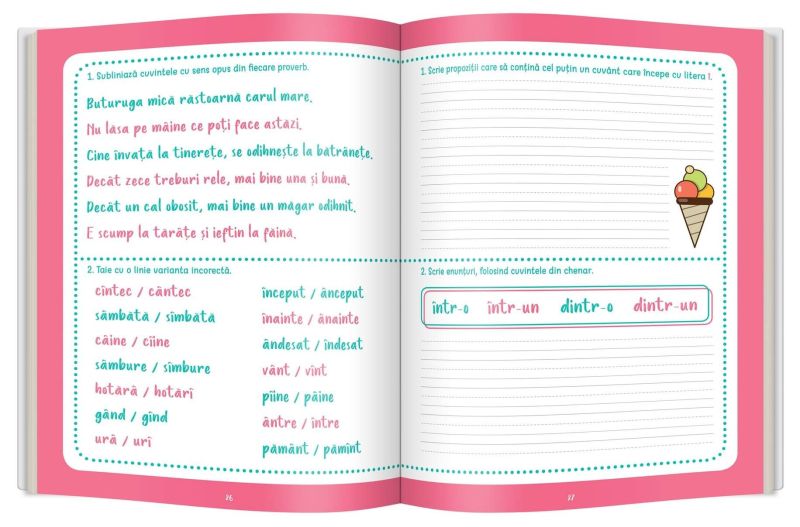 1. Subliniază cuvintele cu sens opus din fiecare proverb.
Buturuga mică răstoarnă carul mare.
Nu lăsa pe mâine ce poți face astăzi.
Cine învață la tinerețe, se odihnește la bătrânețe.
Decât zece treburi rele, mai bine una și bună.
Decât un cal obosit, mai bine un măgar odihnit.
E scump la tărâțe și ieftin la făină.
2. Taie cu o linie varianta incorectă.
cîntec / cântec
sâmbătă / sîmbătă
câine / cîine
sâmbure / sîmbure
hotărâ / hotărî
gând / gînd
urâ / urî
început / ânceput
înainte / ânainte
ândesat / îndesat
vânt / vînt
pîine / pâine
ântre / între
pământ / pămînt
86
1. Scrie propoziții care să conțină cel puțin un cuvânt care începe cu litera î.
2. Scrie enunțuri, folosind cuvintele din chenar.
într-o într-un dintr-o dintr-un
87